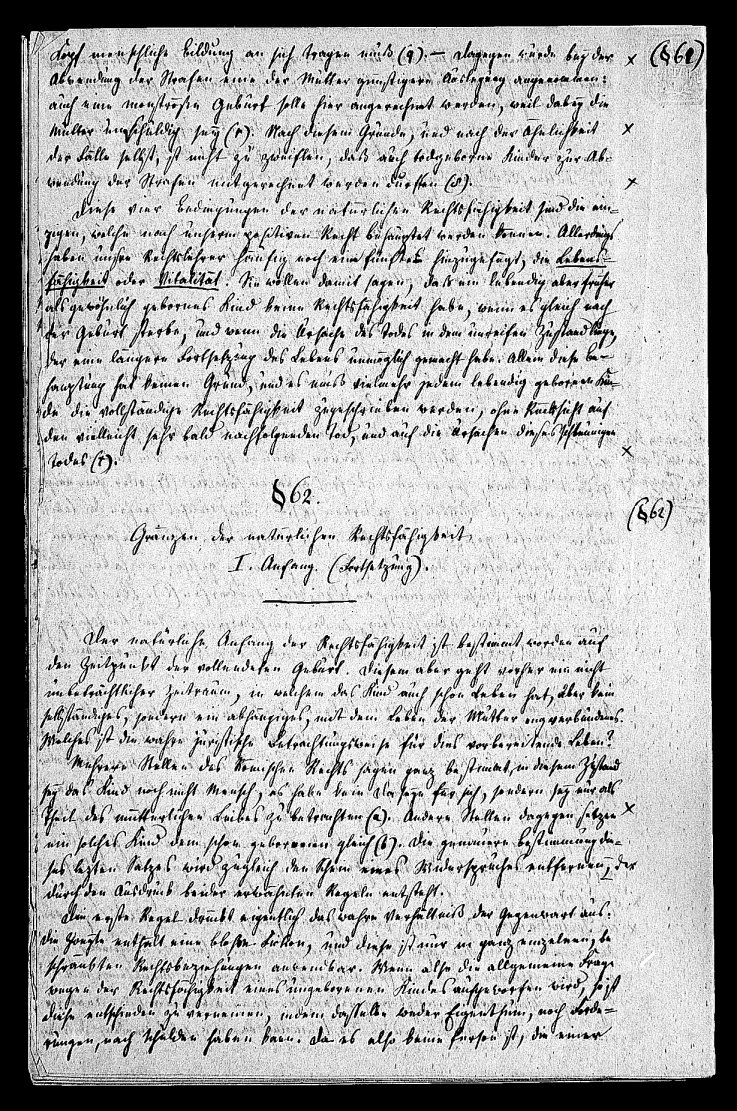 Kopf menschliche Bildung an sich tragen muß (q). — Dagegen würde bey der
Abwendung der Strafen eine der Mutter günstigere Auslegung angenommen:
auch eine monströse Geburt solle hier angerechnet werden, weil dabey die
Mutter unschuldig sey (r). Nach diesem Grunde, und nach der Ähnlichkeit
der Fälle selbst, ist nicht zu zweiflen, daß auch todgeborne Kinder zur Ab-
wendung der Strafen mitgerechnet werden durften (s).
(§61)
Diese vier Bedingungen der natürlichen Rechtsfähigkeit sind die ein-
zigen, welche nach unserm positiven Recht behauptet werden können. Allerdings
haben unsre Rechtslehrer häufig noch eine fünfte hinzugefügt, die Lebens-
fähigkeit oder Vitalität. Sie wollen damit sagen, daß ein lebendig aber früher
als gewöhnlich gebornes Kind keine Rechtsfähigkeit habe, wenn es gleich nach
der Geburt sterbe, und wenn die Ursache des Todes in dem unreifen Zustand liege,
der eine längere Fortsetzung des Lebens unmöglich gemacht habe. Allein diese Be-
hauptung hat keinen Grund, und es muß vielmehr jedem lebendig geborenen Kin-
de die vollständige Rechtsfähigkeit zugeschrieben werden, ohne Rücksicht auf
den vielleicht sehr bald nachfolgenden Tod, und auf die Ursachen dieses schleunigen
Todes (t).
§62.
(§62)
Gränzen der natürlichen Rechtsfähigkeit.
I. Anfang. (Fortsetzung).
Der natürliche Anfang der Rechtsfähigkeit ist bestimmt worden auf
den Zeitpunkt der vollendeten Geburt. Diesem aber geht vorher ein nicht
unbeträchtlicher Zeitraum, in welchem das Kind auch schon Leben hat, aber kein
selbständiges, sondern ein abhängiges, mit dem Leben der Mutter eng verbundenes.
Welches ist die wahre juristische Betrachtungsweise für dies vorbereitende Leben?
Mehrere Stellen des Römischen Rechts sagen ganz bestimmt, in diesem Zustand
sey das Kind noch nicht Mensch, es habe kein Daseyn für sich, sondern sey nur als
Theil des mütterlichen Leibes zu betrachten (a). Andere Stellen dagegen setzen
ein solches Kind dem schon geborenen gleich (b). Die genauere Bestimmung die-
ses lezten Satzes wird zugleich den Schein eines Widerspruches entfernen, der
durch den Ausdruck beider erwähnten Regeln entsteht.
Die erste Regel drückt eigentlich das wahre Verhältniß der Gegenwart aus.
Die zweyte enthält eine bloße Fiction, und diese ist nur in ganz einzelnen, be-
schränkten Rechtsbeziehungen anwendbar. Wenn also die allgemeine Frage
wegen der Rechtsfähigkeit eines ungeborenen Kindes aufgeworfen wird, so ist
diese entschieden zu verneinen, indem dasselbe weder Eigenthum, noch Forde-
rungen, noch Schulden haben kann. Da es also keine Person ist, die einer